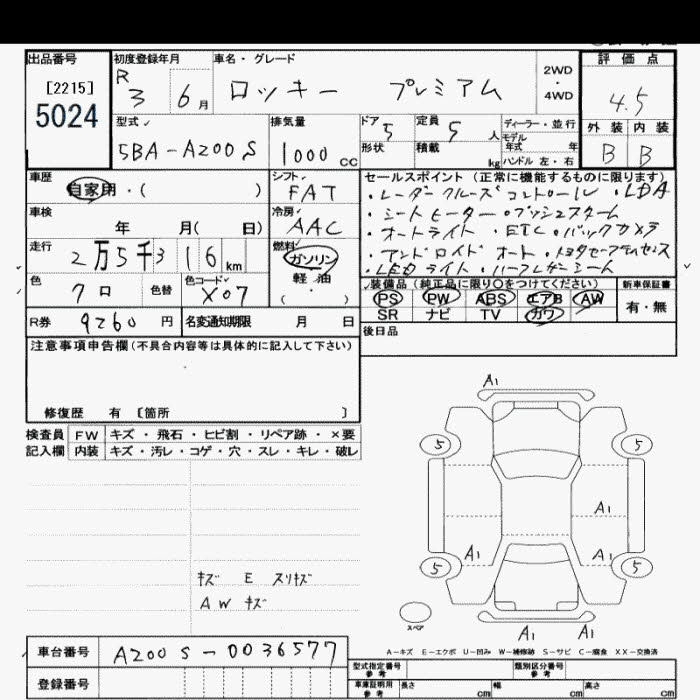 出品番号
[2215]
5024
初度登録年月
R 3 6月
車名・グレード
ロッキー プレミアム
2WD
・
4WD
評価点
4.5
外装 内装
B B
型式
5BA-A200S
排気量
1000 CC
ドア 5
定員 5 人
形状
積載 kg
ディーラー・並行
モデル
年式 年
ハンドル 左・右
車歴
自家用・( )
シフト
FAT
車検
年 月( 日)
冷房
AAC
走行
2万5千316 km
燃料
ガソリン
軽油
色
クロ
色替
色コード
X07
R券 9260円
名変通知期限 月 日
セールスポイント(正常に機能するものに限ります)
・レーダークルーズコントロール ・LDA
・シートヒーター ・プッシュスタート
・オートライト ・ETC ・バックカメラ
・アンドロイド オート ・トヨタセーフティセンス
・LEDライト ・ハーフレザーシート
装備品(純正品に限り○をつけてください)
PS PW ABS エアB AW
SR ナビ TV ガワ
新車保証書
有・無
後日品
注意事項申告欄(不具合内容等は具体的に記入して下さい)
修復歴 有 [箇所 ]
検査員
記入欄
FW キズ・飛石・ヒビ割・リペア跡・×要
内装 キズ・汚レ・コゲ・穴・スレ・キレ・破レ
キズ E スリキズ
AW キズ
A1
5 5
A1
A1 A1
5 5
スペア
A1 A1
A-キズ E-エクボ U-凹み W-補修跡 S-サビ C-腐食 XX-交換済
車台番号
A200S-0036577
登録番号
型式指定番号
参考
類別区分番号
参考
車庫証明用
参考
長さ cm 幅 cm 高さ cm